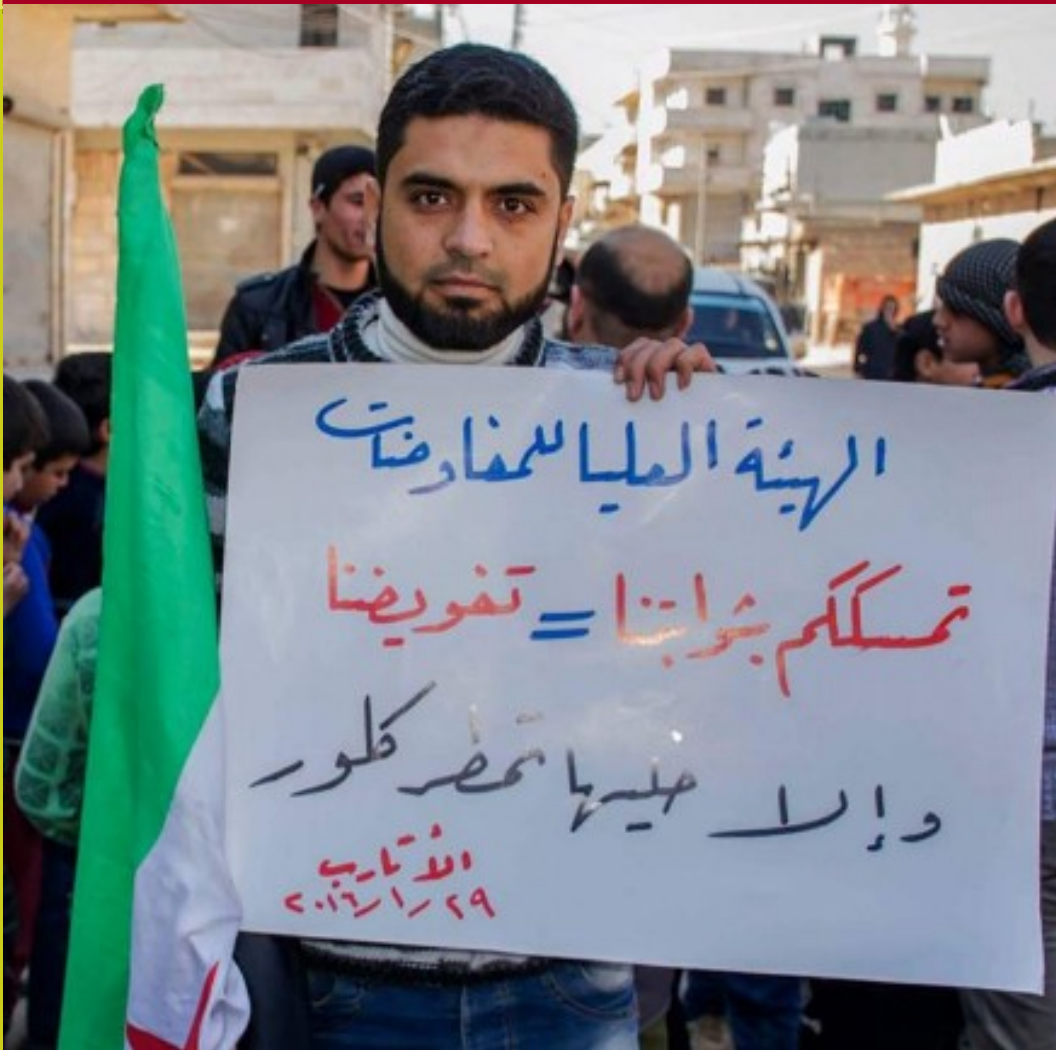 الهيئة العليا للمفاوضات
تمسككم بثوابتنا = تفويضنا
وإلا خليها تمطر كلور
الأتارب
٢٩/١/٢٠١٦